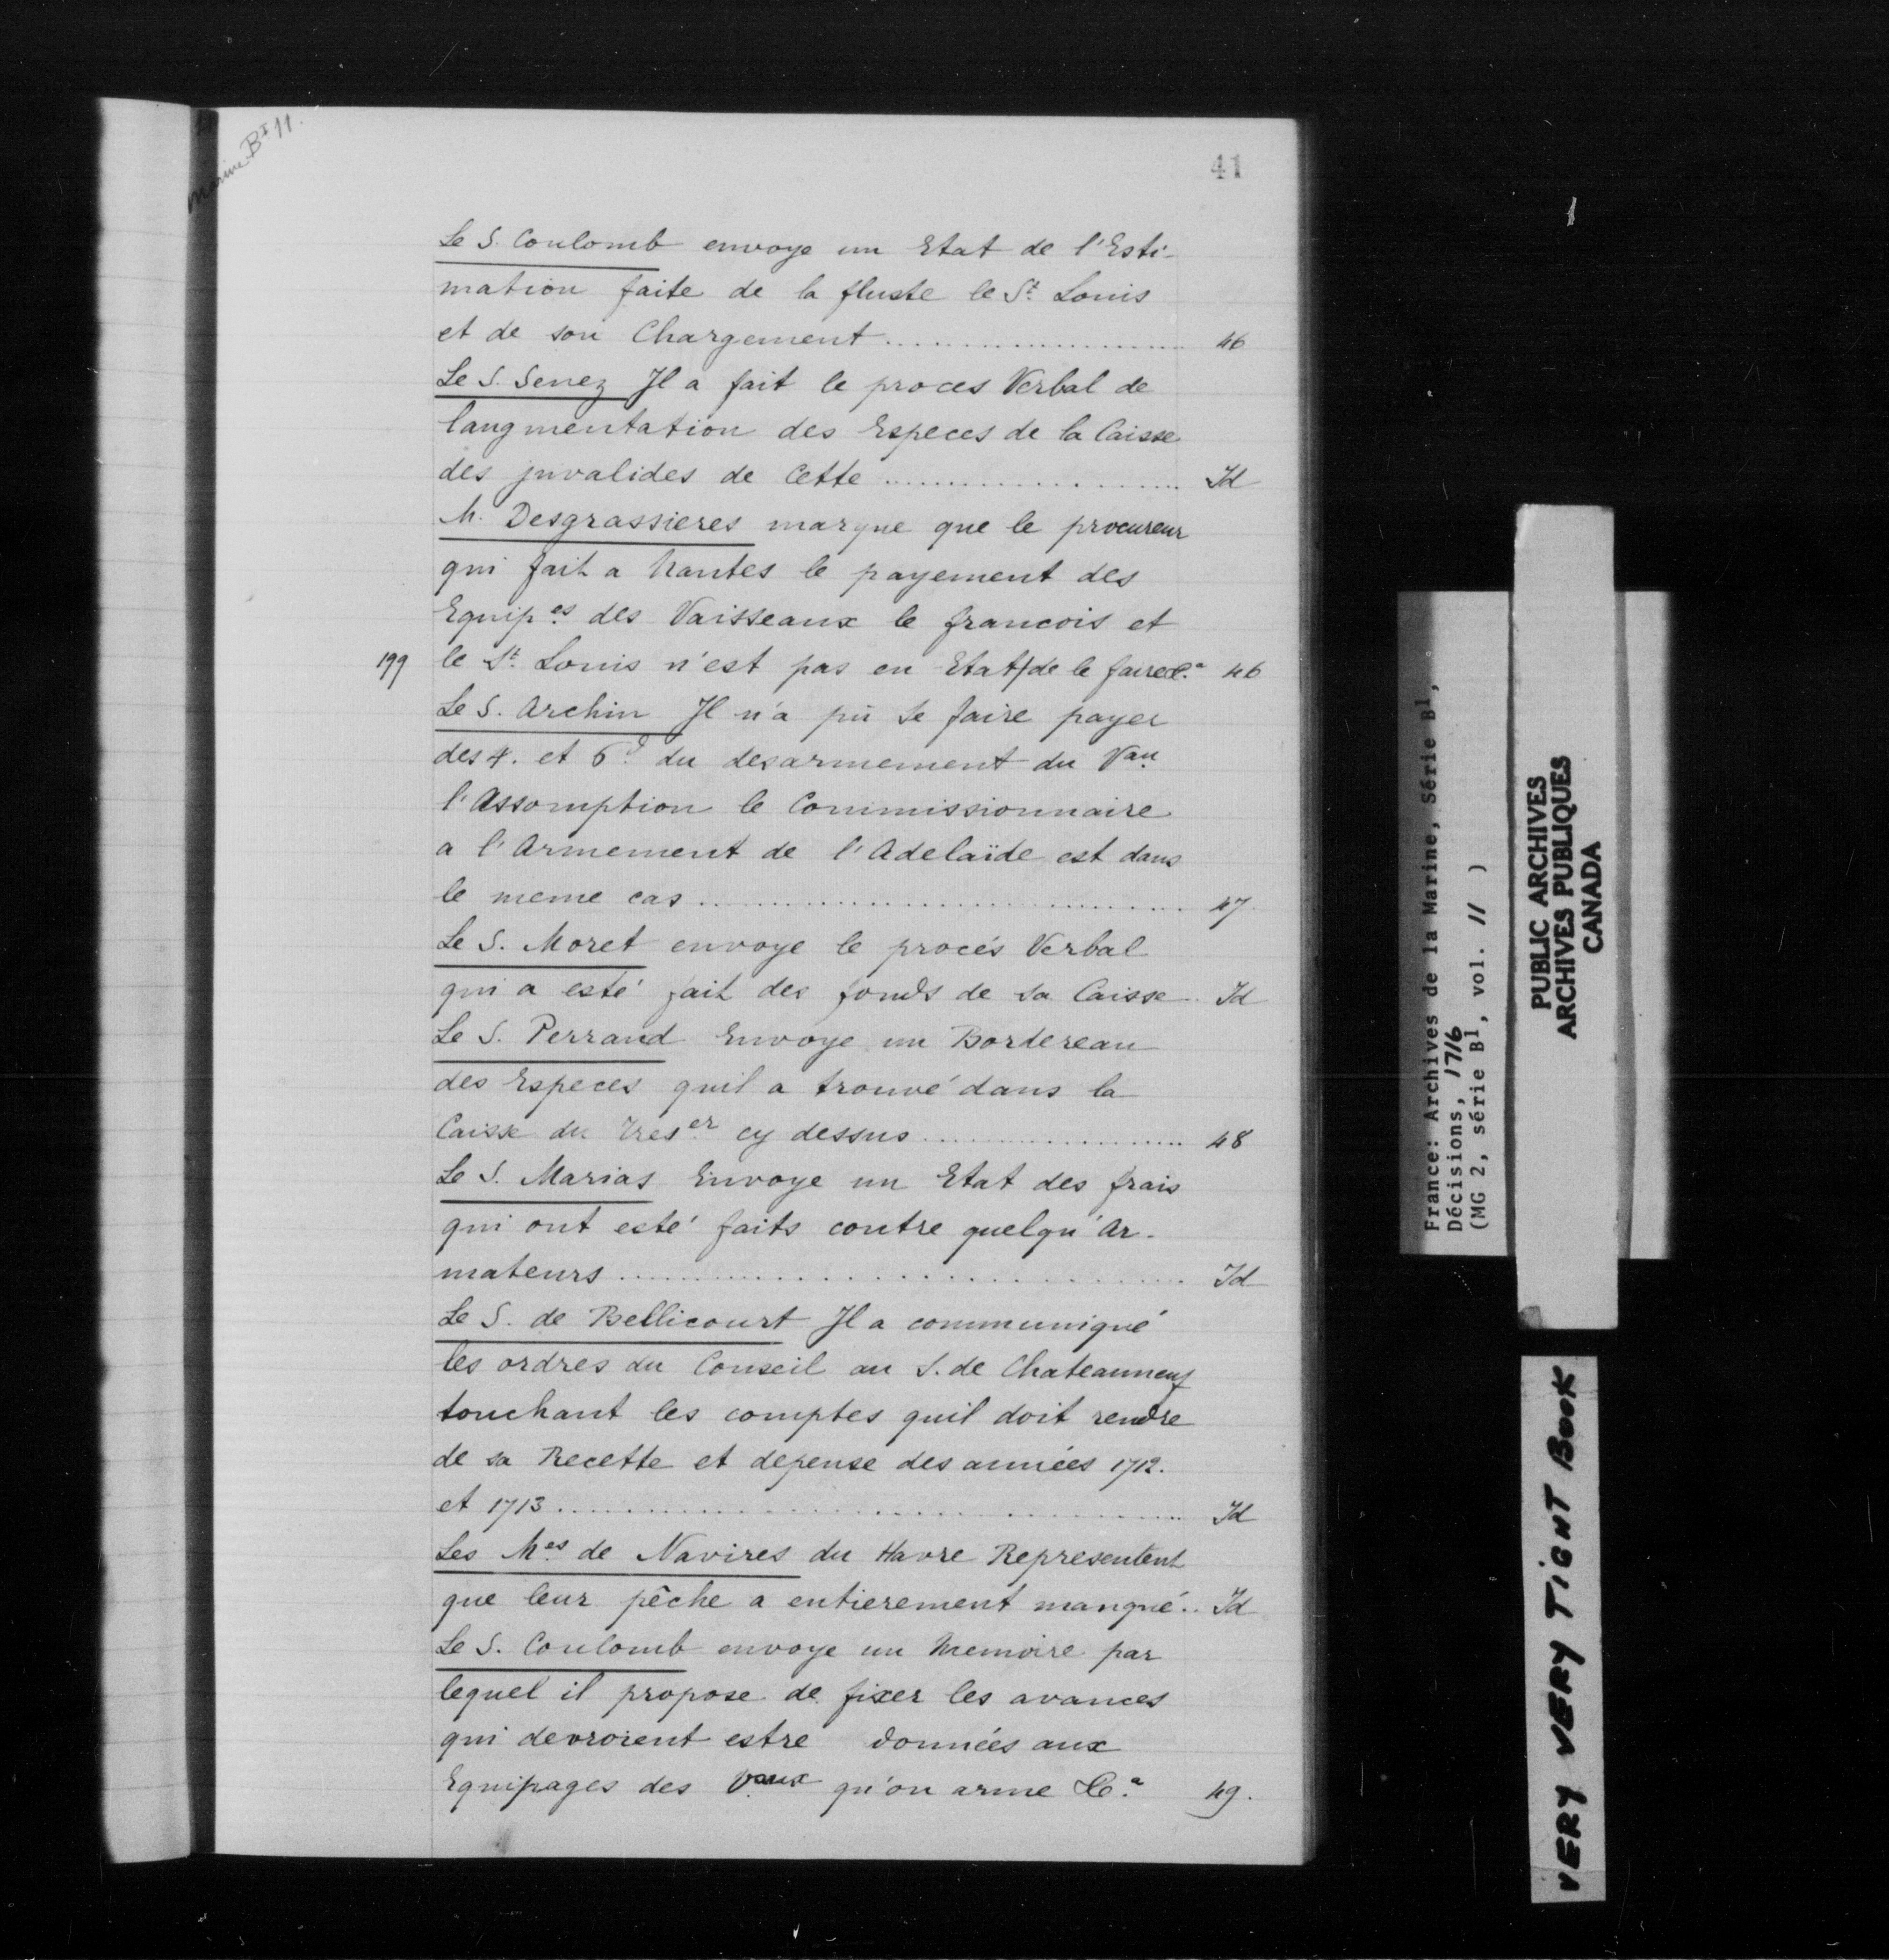 Marine B¹ 11.
41
Le S. Coulomb envoye un Etat de l'Esti-
mation faite de la fluste le St. Louis
et de son Chargement .................... 46
Le S. Senez Il a fait le proces Verbal de
laugmentation des Especes de la Caisse
des jnvalides de Cette .................... Id
M. Desgrassieres marque que le procureur
qui fait a Nantes le payement des
Equip.es des Vaisseaux le francois et
199 le St. Louis n'est pas en Etat/de le faire &c.a 46
Le S. Archin Il n'a pû se faire payer
des 4. et 6.d du desarmement du Vau
l'Assomption le Commissionnaire
a l'Armement de l'Adelaïde est dans
le meme cas .................... 47.
Le S. Moret envoye le procés Verbal
qui a esté fait des fonds de sa Caisse .. Id
Le S. Perraud Envoye un Bordereau
des Especes quil a trouvé dans la
Caisse du Tres.er cy dessus .................... 48
Le S. Marias Envoye un Etat des frais
qui ont esté faits contre quelqu'Ar-
mateurs .................... Id
Le S. de Bellicourt Il a communiqué
les ordres du Conseil au S. de Chateauneuf
touchant les comptes quil doit rendre
de sa Recette et depense des années 1712.
et 1713 .................... Id
Les M.es de Navires du Havre Representent
que leur pêche a entierement manqué .. Id
Le S. Coulomb envoye un Memoire par
lequel il propose de fixer les avances
qui devroient estre données aux
Equipages des V.aux qu'on arme &c.a 49.
France: Archives de la Marine, Série B¹,
Décisions, 1716
(MG 2, série B¹, vol. 11 )
PUBLIC ARCHIVES
ARCHIVES PUBLIQUES
CANADA
VERY VERY TIGHT BOOK